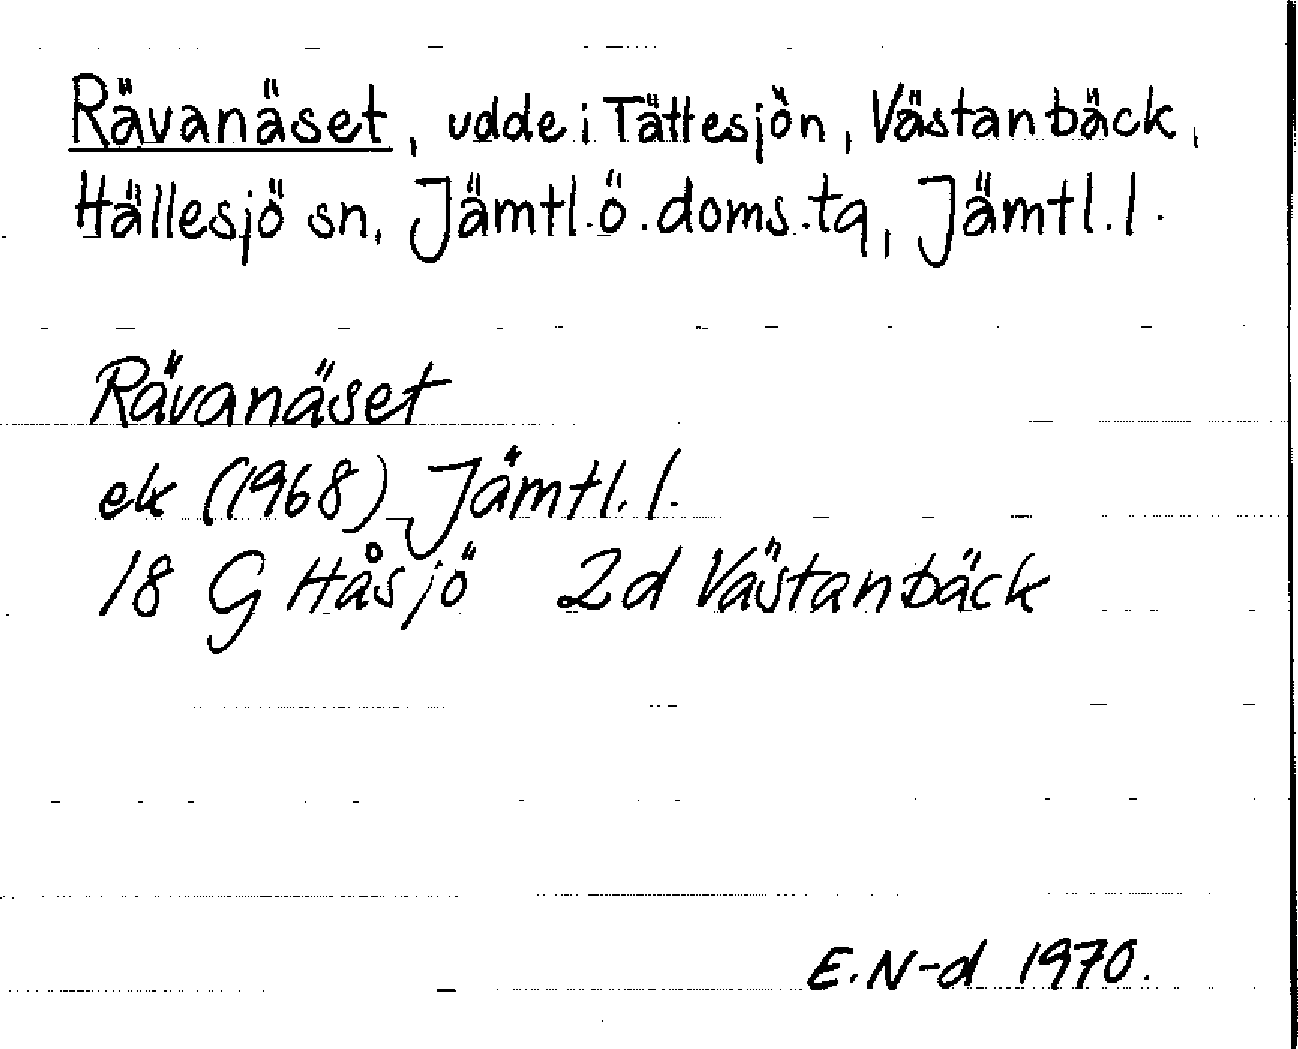 Rävanäset, udde i Tättesjön, Västanbäck,
Hällesjö sn, Jämtl.ö.doms.tg, Jämtl.l.
Rävanäset
ek (1968) Jämtl.l.
18 G Håsjö 2d Västanbäck
E.N-d 1970.